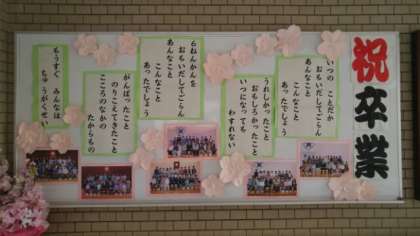 祝卒業
いつの ことだか
おもいだしてごらん
あんなこと
こんなこと
あったでしょう
うれしかったこと
おもしろかったこと
いつになっても
わすれない
6ねんかんを
おもいだしてごらん
あんなこと
こんなこと
あったでしょう
がんばったこと
のりこえてきたこと
こころのなかの
たからもの
もうすぐ みんなは
ちゅうがくせい